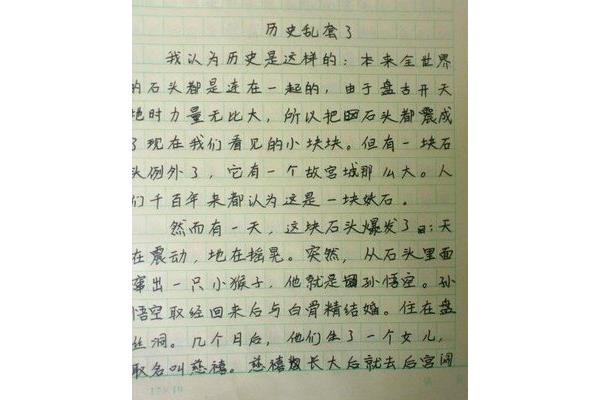 历史乱套了
我认为历史是这样的：本来全世界
的石头都是连在一起的，由于盘古开天
地时力量无比大，所以把石头都震成
了现在我们看见的小块块。但有一块石
头例外了，它有一个故宫城那么大。人
们千百年来都认为这是一块妖石。
然而有一天，这块石头爆发了：天
在震动，地在摇晃。突然，从石头里面
窜出一只小猴子，他就是孙悟空。孙
悟空取经回来后与白骨精结婚。住在盘
丝洞。几个月后，他们生了一个女儿，
取名叫慈禧。慈禧长大后就去后宫闯